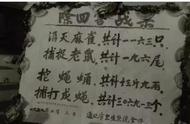 除四害战果
消灭麻雀共计一六三只
捕捉老鼠共计一九六尾
挖蝇蛹共计十三斤九两
捕打成蝇共计三六九一三个